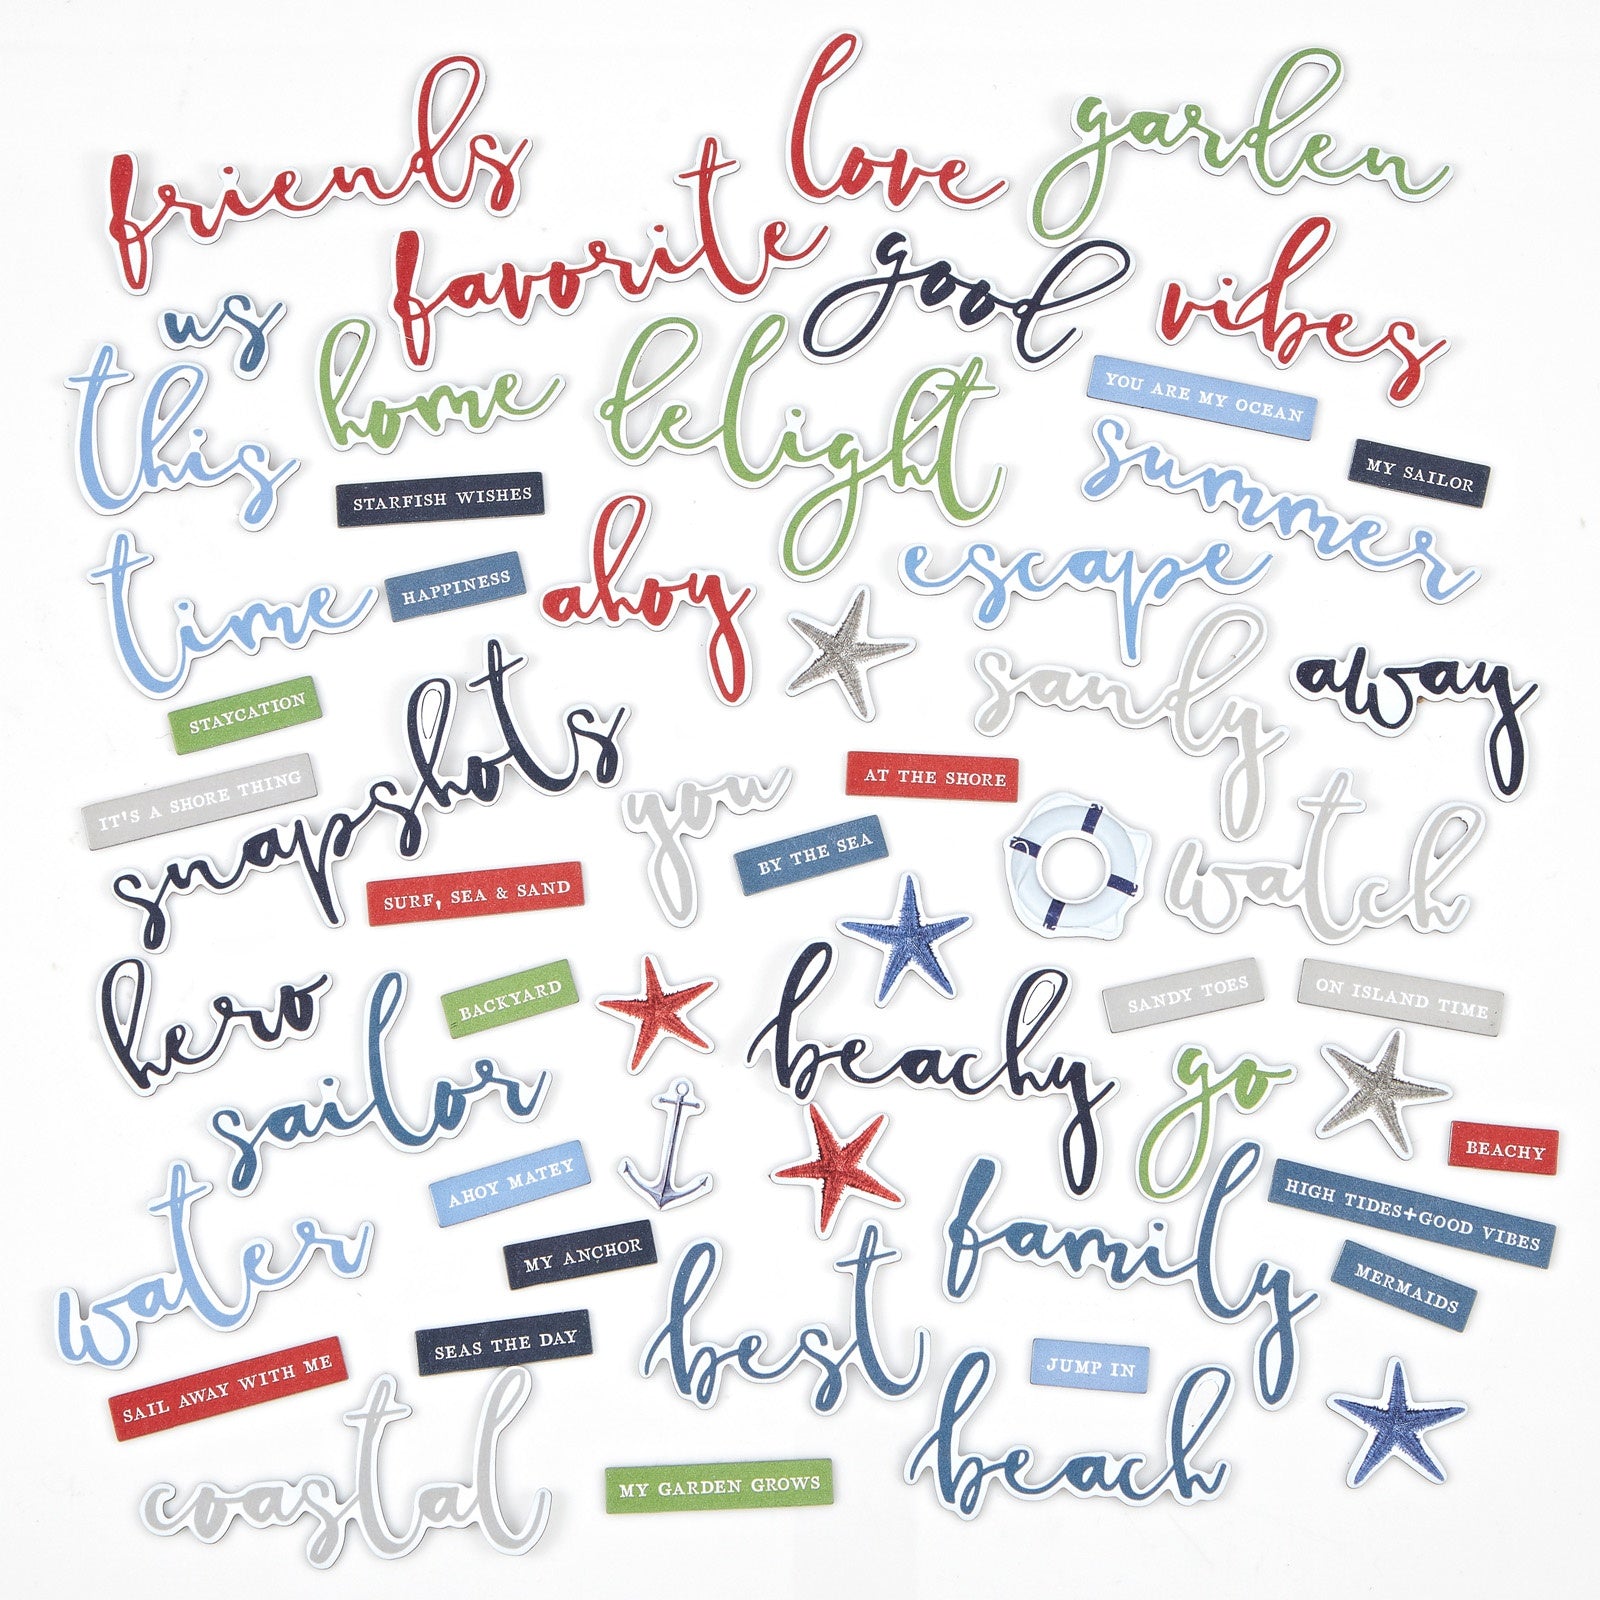 friends
love
garden
favorite
good
vibes
us
this
home
delight
YOU ARE MY OCEAN
summer
MY SAILOR
STARFISH WISHES
time
HAPPINESS
ahoy
escape
sandy
away
STAYCATION
snapshots
IT'S A SHORE THING
you
AT THE SHORE
BY THE SEA
watch
SURF, SEA & SAND
hero
BACKYARD
beachy
SANDY TOES
ON ISLAND TIME
sailor
go
BEACHY
AHOY MATEY
family
HIGH TIDES+GOOD VIBES
water
MY ANCHOR
best
MERMAIDS
SEAS THE DAY
SAIL AWAY WITH ME
JUMP IN
beach
coastal
MY GARDEN GROWS